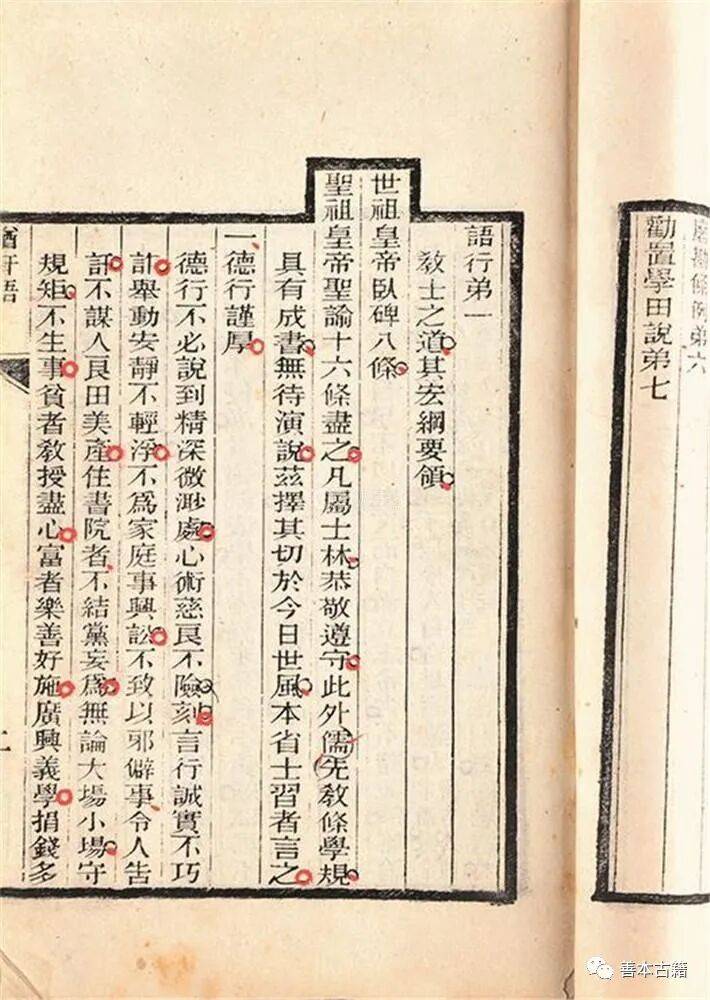 磨勘條例弟六
勸置學田說弟七
語行弟一
教士之道其宏綱要領
世祖皇帝臥碑八條
聖祖皇帝聖諭十六條盡之凡屬士林恭敬遵守此外儒先教條學規
具有成書無待演說茲擇其切於今日世風本省士習者言之
一德行謹厚
德行不必說到精深微渺處心術慈良不險刻言行誠實不巧
詐舉動安靜不輕浮不爲家庭事興訟不致以邪僻事令人告
訐不謀人良田美產住書院者不結黨妄爲無論大場小場守
規矩不生事貧者教授盡心富者樂善好施廣興義學捐錢多
軒語
善本古籍